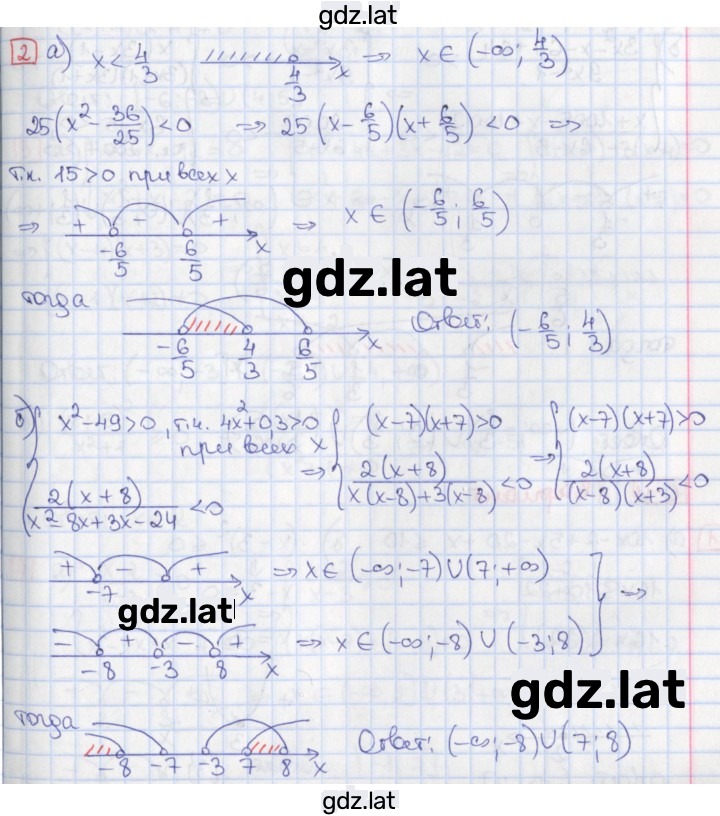 gdz.lat
2 а) x < 4/3 4/3 x => x ∈ (-∞; 4/3)
25(x² - 36/25) < 0 => 25(x - 6/5)(x + 6/5) < 0 =>
т.к. 15 > 0 при всех x
=> + - + -6/5 6/5 x => x ∈ (-6/5; 6/5)
gdz.lat
тогда
-6/5 4/3 6/5 x Ответ: (-6/5; 4/3)
б) { x² - 49 > 0, т.к. 4x² + 0,3 > 0 при всех x
2(x + 8)/(x² - 8x + 3x - 24) < 0
=> { (x - 7)(x + 7) > 0
2(x + 8)/(x(x - 8) + 3(x - 8)) < 0
=> { (x - 7)(x + 7) > 0
2(x + 8)/((x - 8)(x + 3)) < 0
+ - + -7 x => x ∈ (-∞; -7) ∪ (7; +∞)
gdz.lat
=>
- + - + -8 -3 8 x => x ∈ (-∞; -8) ∪ (-3; 8)
gdz.lat
тогда
-8 -7 -3 7 8 x Ответ: (-∞; -8) ∪ (7; 8)
gdz.lat